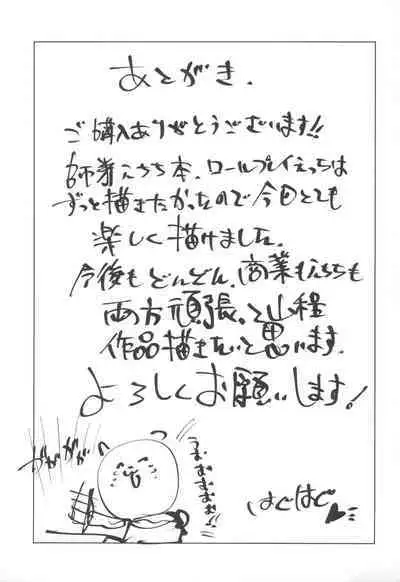 あとがき.
ご購入ありがとうございます!!
師弟えちち本、ロールプレイえっちは
ずっと描きたかったので今回とても
楽しく描けました.
今後もどんどん、商業もえちちも
両方頑張って山程
作品描きたいと思います.
よろしくお願いします!
ガガガガ
うおおおおお
はじはじ